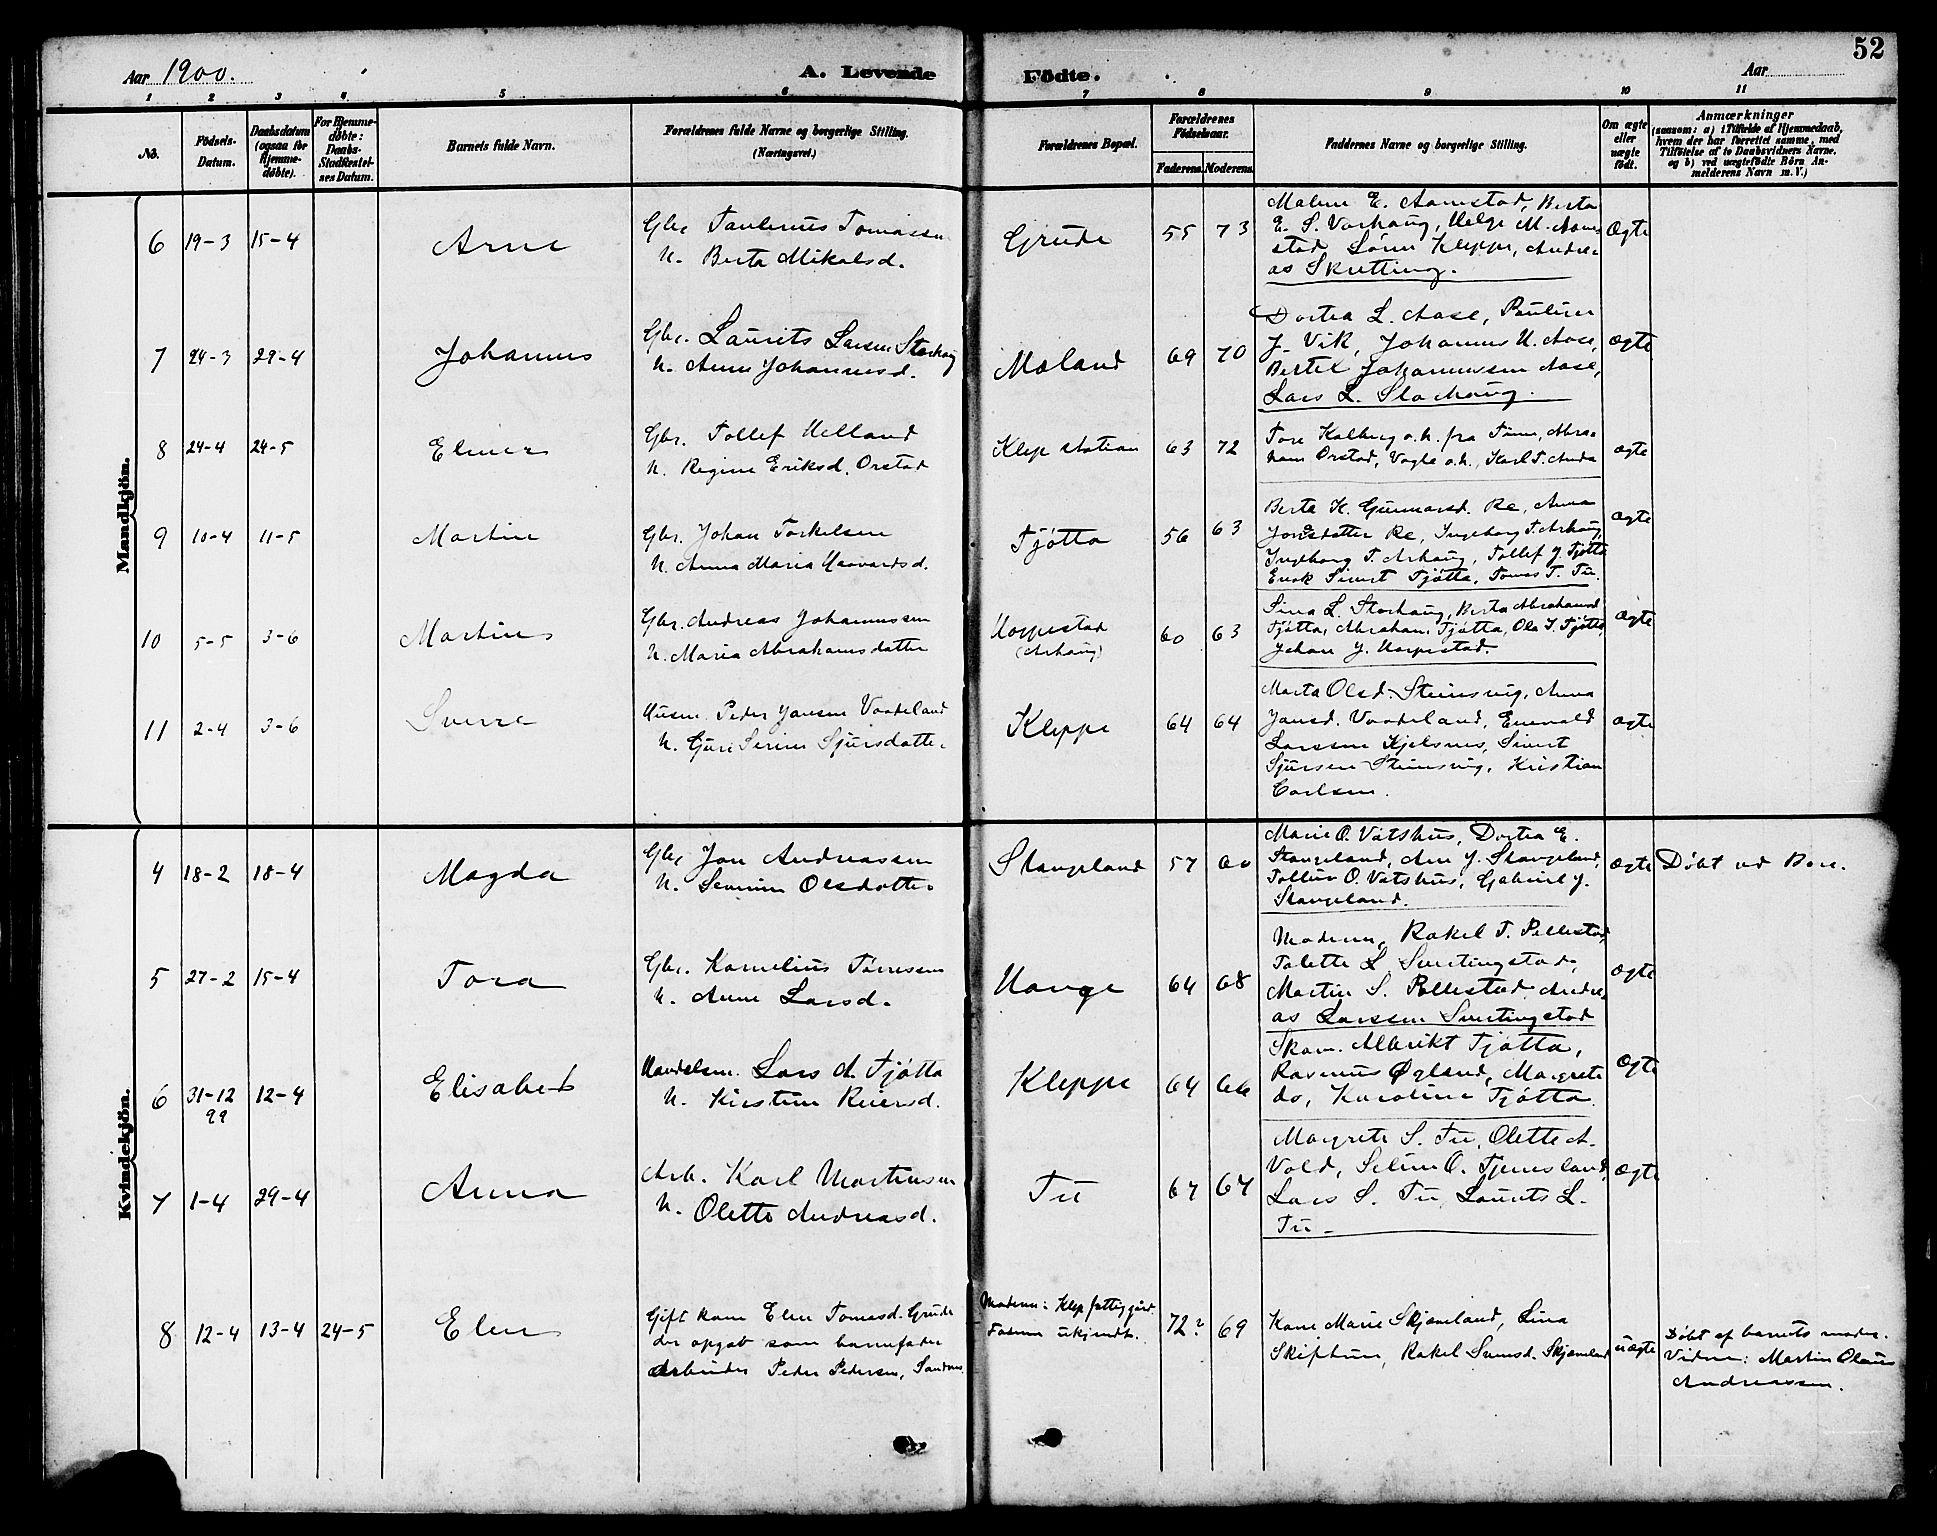 52
Aar 1900. A. Levende Fødte. Aar
1 2 3 4 5 6 7 8 9 10 11
No.
Fødsels-
Datum.
Daabsdatum
(ogsaa for
Hjemme-
døbte).
For Hjemme-
døbte:
Daabs-
Stadfæstel-
ses Datum.
Barnets fulde Navn.
Forældrenes fulde Navne og borgerlige Stilling.
(Næringsvei.)
Forældrenes Bopæl.
Forældrenes
Fødselsaar.
Faderens. Moderens.
Faddernes Navne og borgerlige Stilling.
Om ægte
eller
uægte
født.
Anmærkninger
(saasom: a) i Tilfælde af Hjemmedaab,
hvem der har forrettet samme, med
Tilføielse af to Daabsvidners Navne,
og b) ved uægtefødte Børn An-
melderens Navn m. V.)
Mandkjøn.
6 19-3 15-4 Arne
Gbr Paulinus Tomassen
H. Berta Mikalsd.
Grude 55 73
Malene E. Aanestad, Berta
E. S. Varhaug, Helge M. Aane
stad Sören Kleppe, Andre-
as Skretting.
Ægte
7 24-3 29-4 Johannes
Gbr. Laurits Larsen Storhaug
H. Anne Johannesd.
Moland 69 70
Dortea L. Aase, Pauline
J. Vik, Johannes H. Aase,
Bertel Johannessen Aase,
Lars L. Storhaug.
ægte
8 24-4 24-5 Elmer
Gbr. Tollef Helland
H. Regine Eriksd. Orstad
Klep station 63 72
Tore Kalberg o. h. fra Time, Abra-
ham Orstad, Vagle o. h., Karl T. Anda
ægte
9 10-4 11-5 Martin
Gbr. Johan Torkelsen
H. Anna Maria Haavardsd.
Tjøtta 56 63
Berta K. Gunnarsd. Re, Anna
Jonsdatter Re, Ingeborg T. Arhaug,
Ingeborg T. Arhaug, Tollef J. Tjøtta
Enok Sivert Tjøtta, Tomas T. Tu.
ægte
10 5-5 3-6 Martin
Gbr. Andreas Johannessen
H. Maria Abrahamsdatter
Horpestad
(Arhaug)
60 63
Sina L. Storhaug, Berta Abrahamsd
Tjøtta, Abraham Tjøtta, Ola I. Tjøtta,
Johan J. Horpestad.
ægte
11 2-4 3-6 Sverre
Husm. Peder Jansen Vaadeland
H. Guri Serine Sjursdatter
Kleppe 64 64
Marta Olsd. Steinsvig, Anna
Jansd. Vaadeland, Enevald
Larssen Kjelsnes, Sivert
Sjursen Steinsvig, Kristian
Carlsen.
ægte
Kvindekjøn.
4 18-2 18-4 Magda
Gbr Jon Andreassen
H. Severine Olsdatter
Stangeland 57 60
Marie O. Vatshus, Dortea E.
Stangeland, Ane J. Stangeland,
O. Vatshus, Gabriel J.
Stangeland.
ægte Døbt ved Bore.
5 27-2 15-4 Tora
Gbr. Kornelius Tørresen
H. Anne Larsd.
Hauge 64 68
Moderen, Rakel T. Pollestad,
Talette L Svertingstad,
Martin S. Pollestad, Andre
as Larssen Svertingstad
ægte
6 31-12 12-4 Elisabet
99
Handelsm. Lars A. Tjøtta
H. Kirstine Reiersd.
Kleppe 64 66
Skom. Albrikt Tjøtta,
Rasmus Øgland, Margrete
do, Karoline Tjøtta.
ægte
7 1-4 29-4 Anna
Arb. Karl Martinsen
H. Olette Andreasd.
Tu 67 67
Margrete S. Tu, Olette A.
Vold, Seline O. Tjemsland,
Lars S. Tu, Laurits L.
Tu.
ægte
8 12-4 13-4 24-5 Elen
Gift kone Elen Tomasd. Grude
der opgab som barnefader
Arbeider Peder Pedersen, Sandnes
Moderen: Klep fattiggård.
Faderen ukjendt.
72? 69
Kone Marie Skjæveland, Lina
Skiftun, Rakel Svensd. Skjæveland
uægte
Døbt af barnets moder.
Vidne: Martin Olaus
Andreassen.